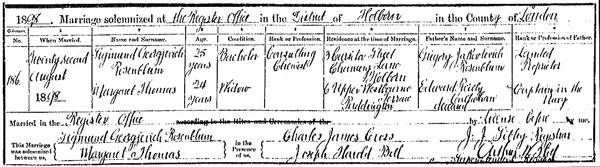 1898. Marriage solemnized at The Register Office in the District of Holborn in the County of London
No. When Married. Name and Surname. Age. Condition. Rank or Profession. Residence at the time of Marriage. Father's Name and Surname. Rank or Profession of Father.
186 Twenty second August 1898 Sigmund Georgjevich Rosenblum 25 years Bachelor Consulting Chemist 3 Cursitor Street Chancery Lane Holborn Gregory Jakovlevich Rosenblum Landed Proprietor
Margaret Thomas 24 years Widow 6 Upper Westbourne Terrace Paddington Edward Reilly Callahan deceased Captain in the Navy
Married in the Register Office according to the Rites and Ceremonies of the by License before by me,
This Marriage was solemnized between us, Sigmund Georgjevich Rosenblum Margaret Thomas in the Presence of us, Charles James Cross Joseph Harold Bell Registrar
Superintendent Registrar